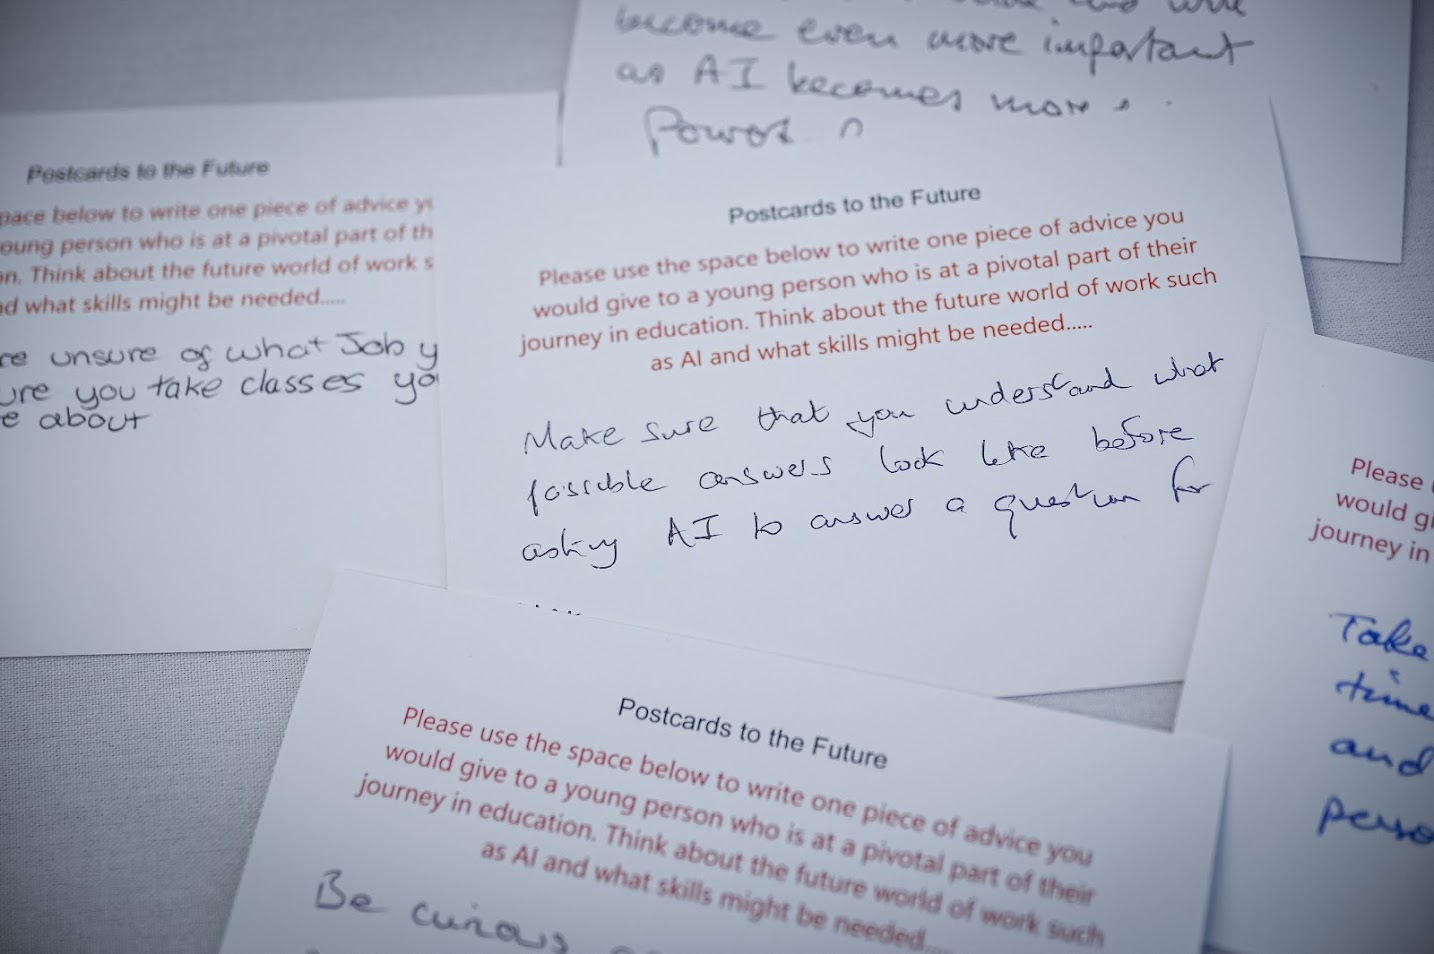 become even more important
as AI becomes more
Postcards to the Future
pace below to write one piece of advice
oung person who is at a pivotal part of th
n. Think about the future world of work s
d what skills might be needed.....
re unsure of what Job y
ure you take classes yo
e about
Postcards to the Future
Please use the space below to write one piece of advice you
would give to a young person who is at a pivotal part of their
journey in education. Think about the future world of work such
as AI and what skills might be needed.....
Make sure that you understand what
possible answers look like before
asking AI to answer a question for
Please
would gi
journey in
Take
time
and
perso
Postcards to the Future
Please use the space below to write one piece of advice you
would give to a young person who is at a pivotal part of their
journey in education. Think about the future world of work such
as AI and what skills might be needed.....
Be curious